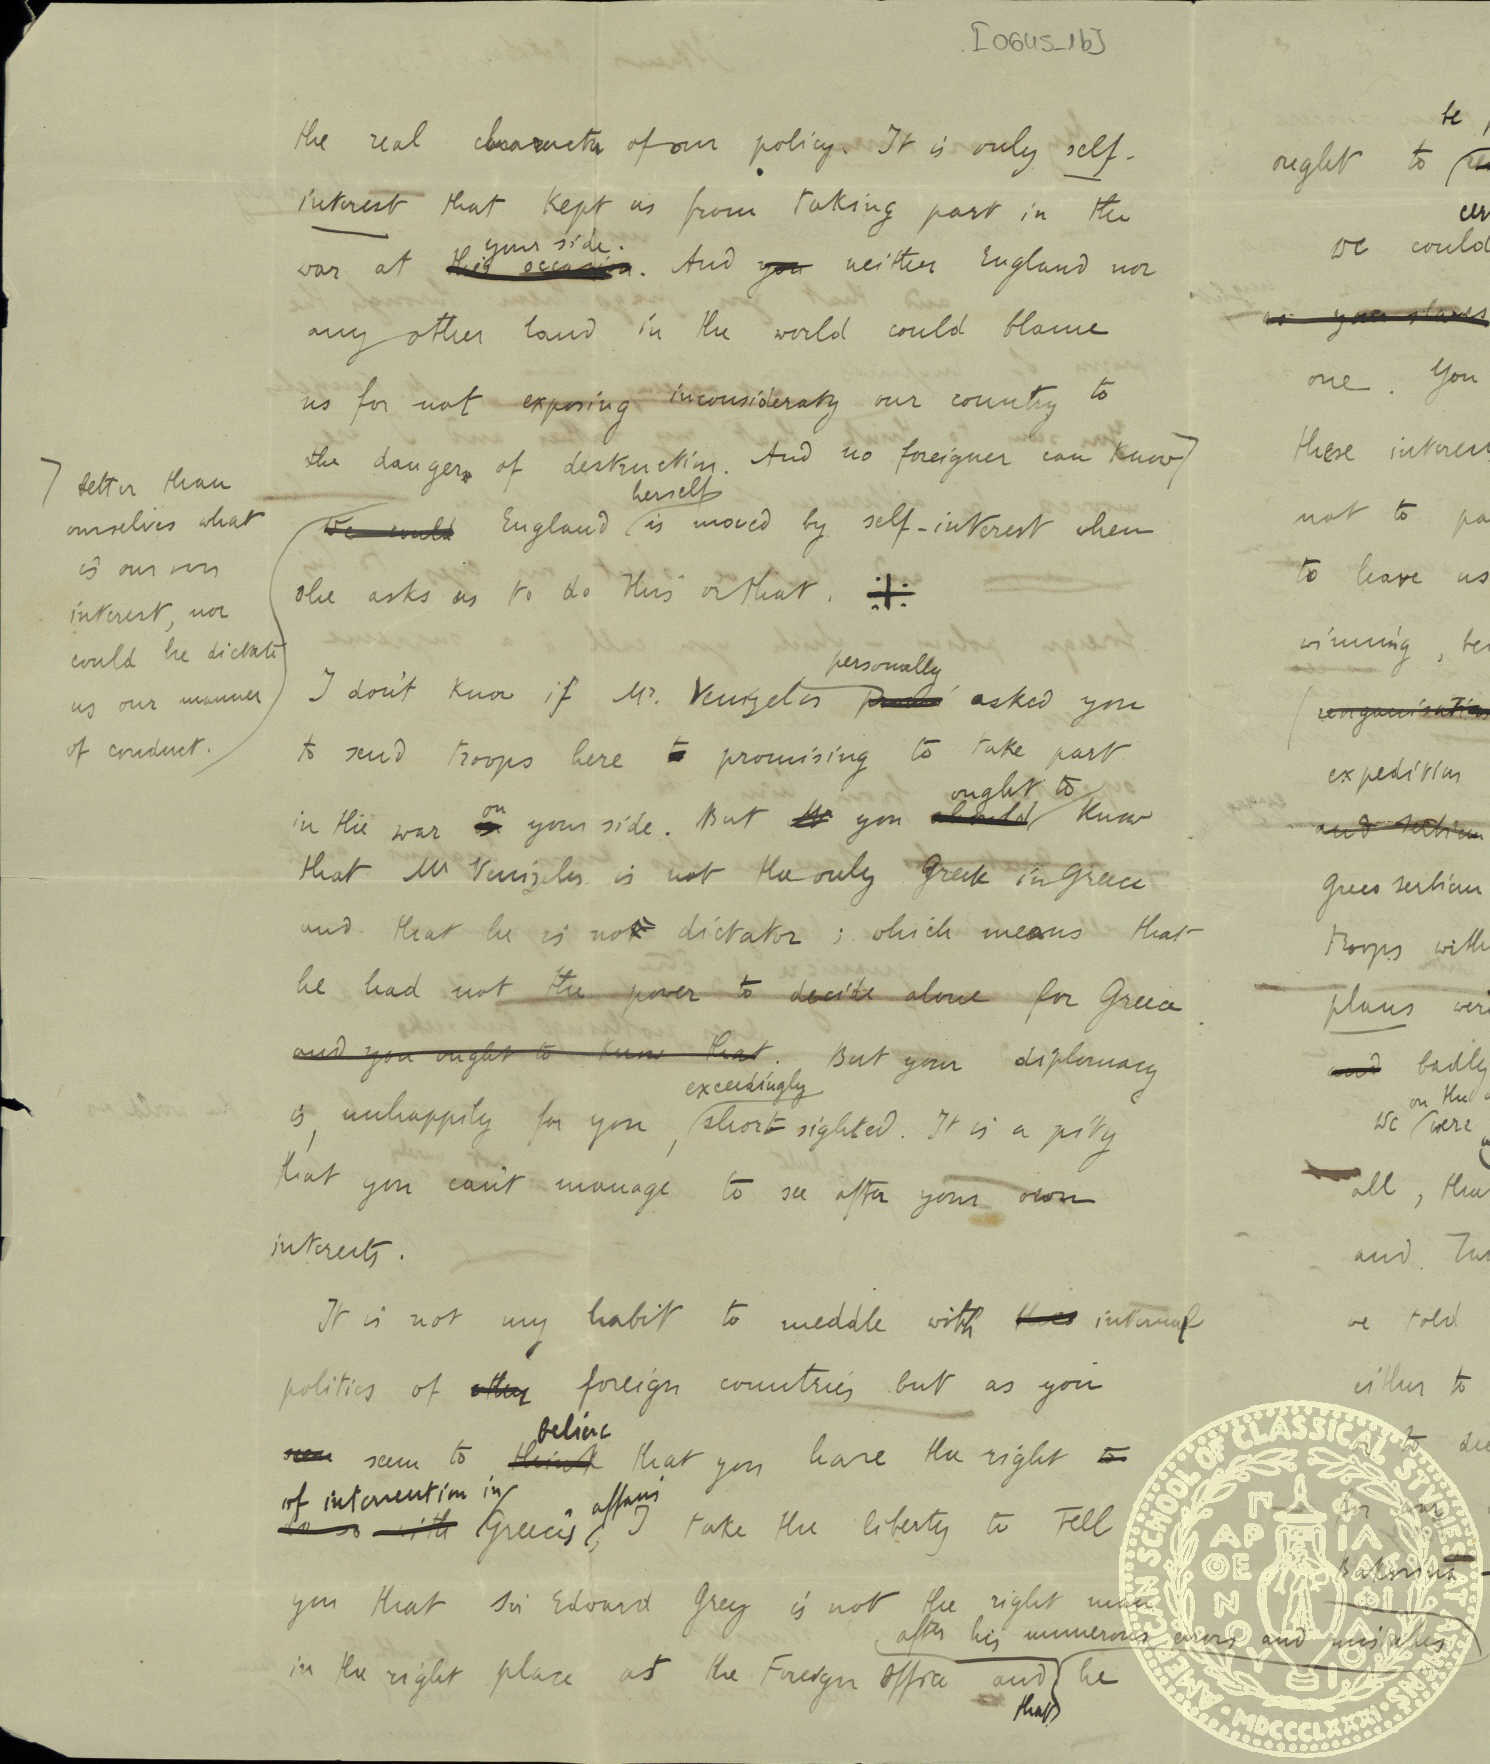 [0645_1b]
the real character of our policy. It is only self-
interest that kept us from taking part in the
your side.
war at this occasion. And you neither England nor
any other land in the world could blame
us for not exposing inconsideraty our country to
the dangers of destruction. And no foreigner can know
better than
ourselves what
is our own
interest, nor
could he dictate
us our manner
of conduct.
herself
We could England is moved by self-interest when
she asks us to do this or that.
personally
I don't know if Mr. Venizelos asked you
to send troops here to promising to take part
on ought to
in the war in your side. But you should know
that Mr Venizelos is not the only Greek in Greece
and that he is not dictator; which means that
he had not the power to decide alone for Greece
and you ought to know that. But your diplomacy
exceedingly
is, unhappily for you, short sighted. It is a pity
that you can't manage to see after your own
interests.
It is not my habit to meddle with internal
politics of other foreign countries but as you
believe
seem seem to think that you have the right to
of intervention in affairs
to so with Greece's, I take the liberty to tell
you that Sir Edward Grey is not the right man
after his numerous errors and mistakes
in the right place at the Foreign Office and he
that
be
ought to
we could
as your slaves
one. You
these interest
not to
to leave us
winning,
reorganisation
expedition
and serbian
Greco serbian
troops with
plans were
and badly
on the
we were
all,
and
we told
either to
to
for our
AMERICAN SCHOOL OF CLASSICAL STUDIES AT ATHENS
MDCCCLXXXI
ΠΑΡΘΕΝΟΥ ΦΙΛΑΣ ΦΙΛΟΙ